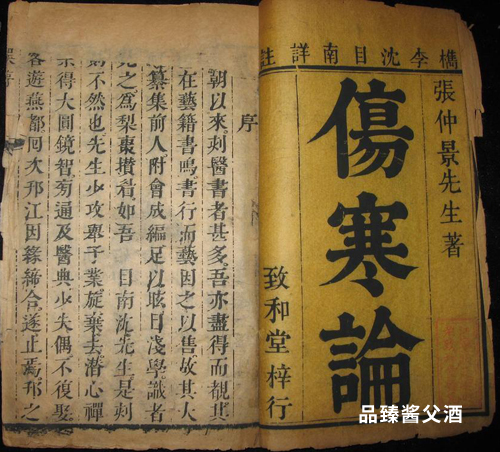 檇李沈目南詳註
張仲景先生著
傷寒論
致和堂梓行
序
朝以來刻醫書者甚多吾亦盡得而觀其
在藝籍書鳴書行而藝因之以售故其大
纂集前人附會成編足以眩目淺學識者
之為梨棗攢眉如吾 目南沈先生是刻
則不然也先生少攻舉子業旋棄去潛心禪
宗得大圓鏡智旁通及醫典少失偶不復娶
客遊燕都回次邗江因緣締合遂止焉邗之
品臻酱父酒